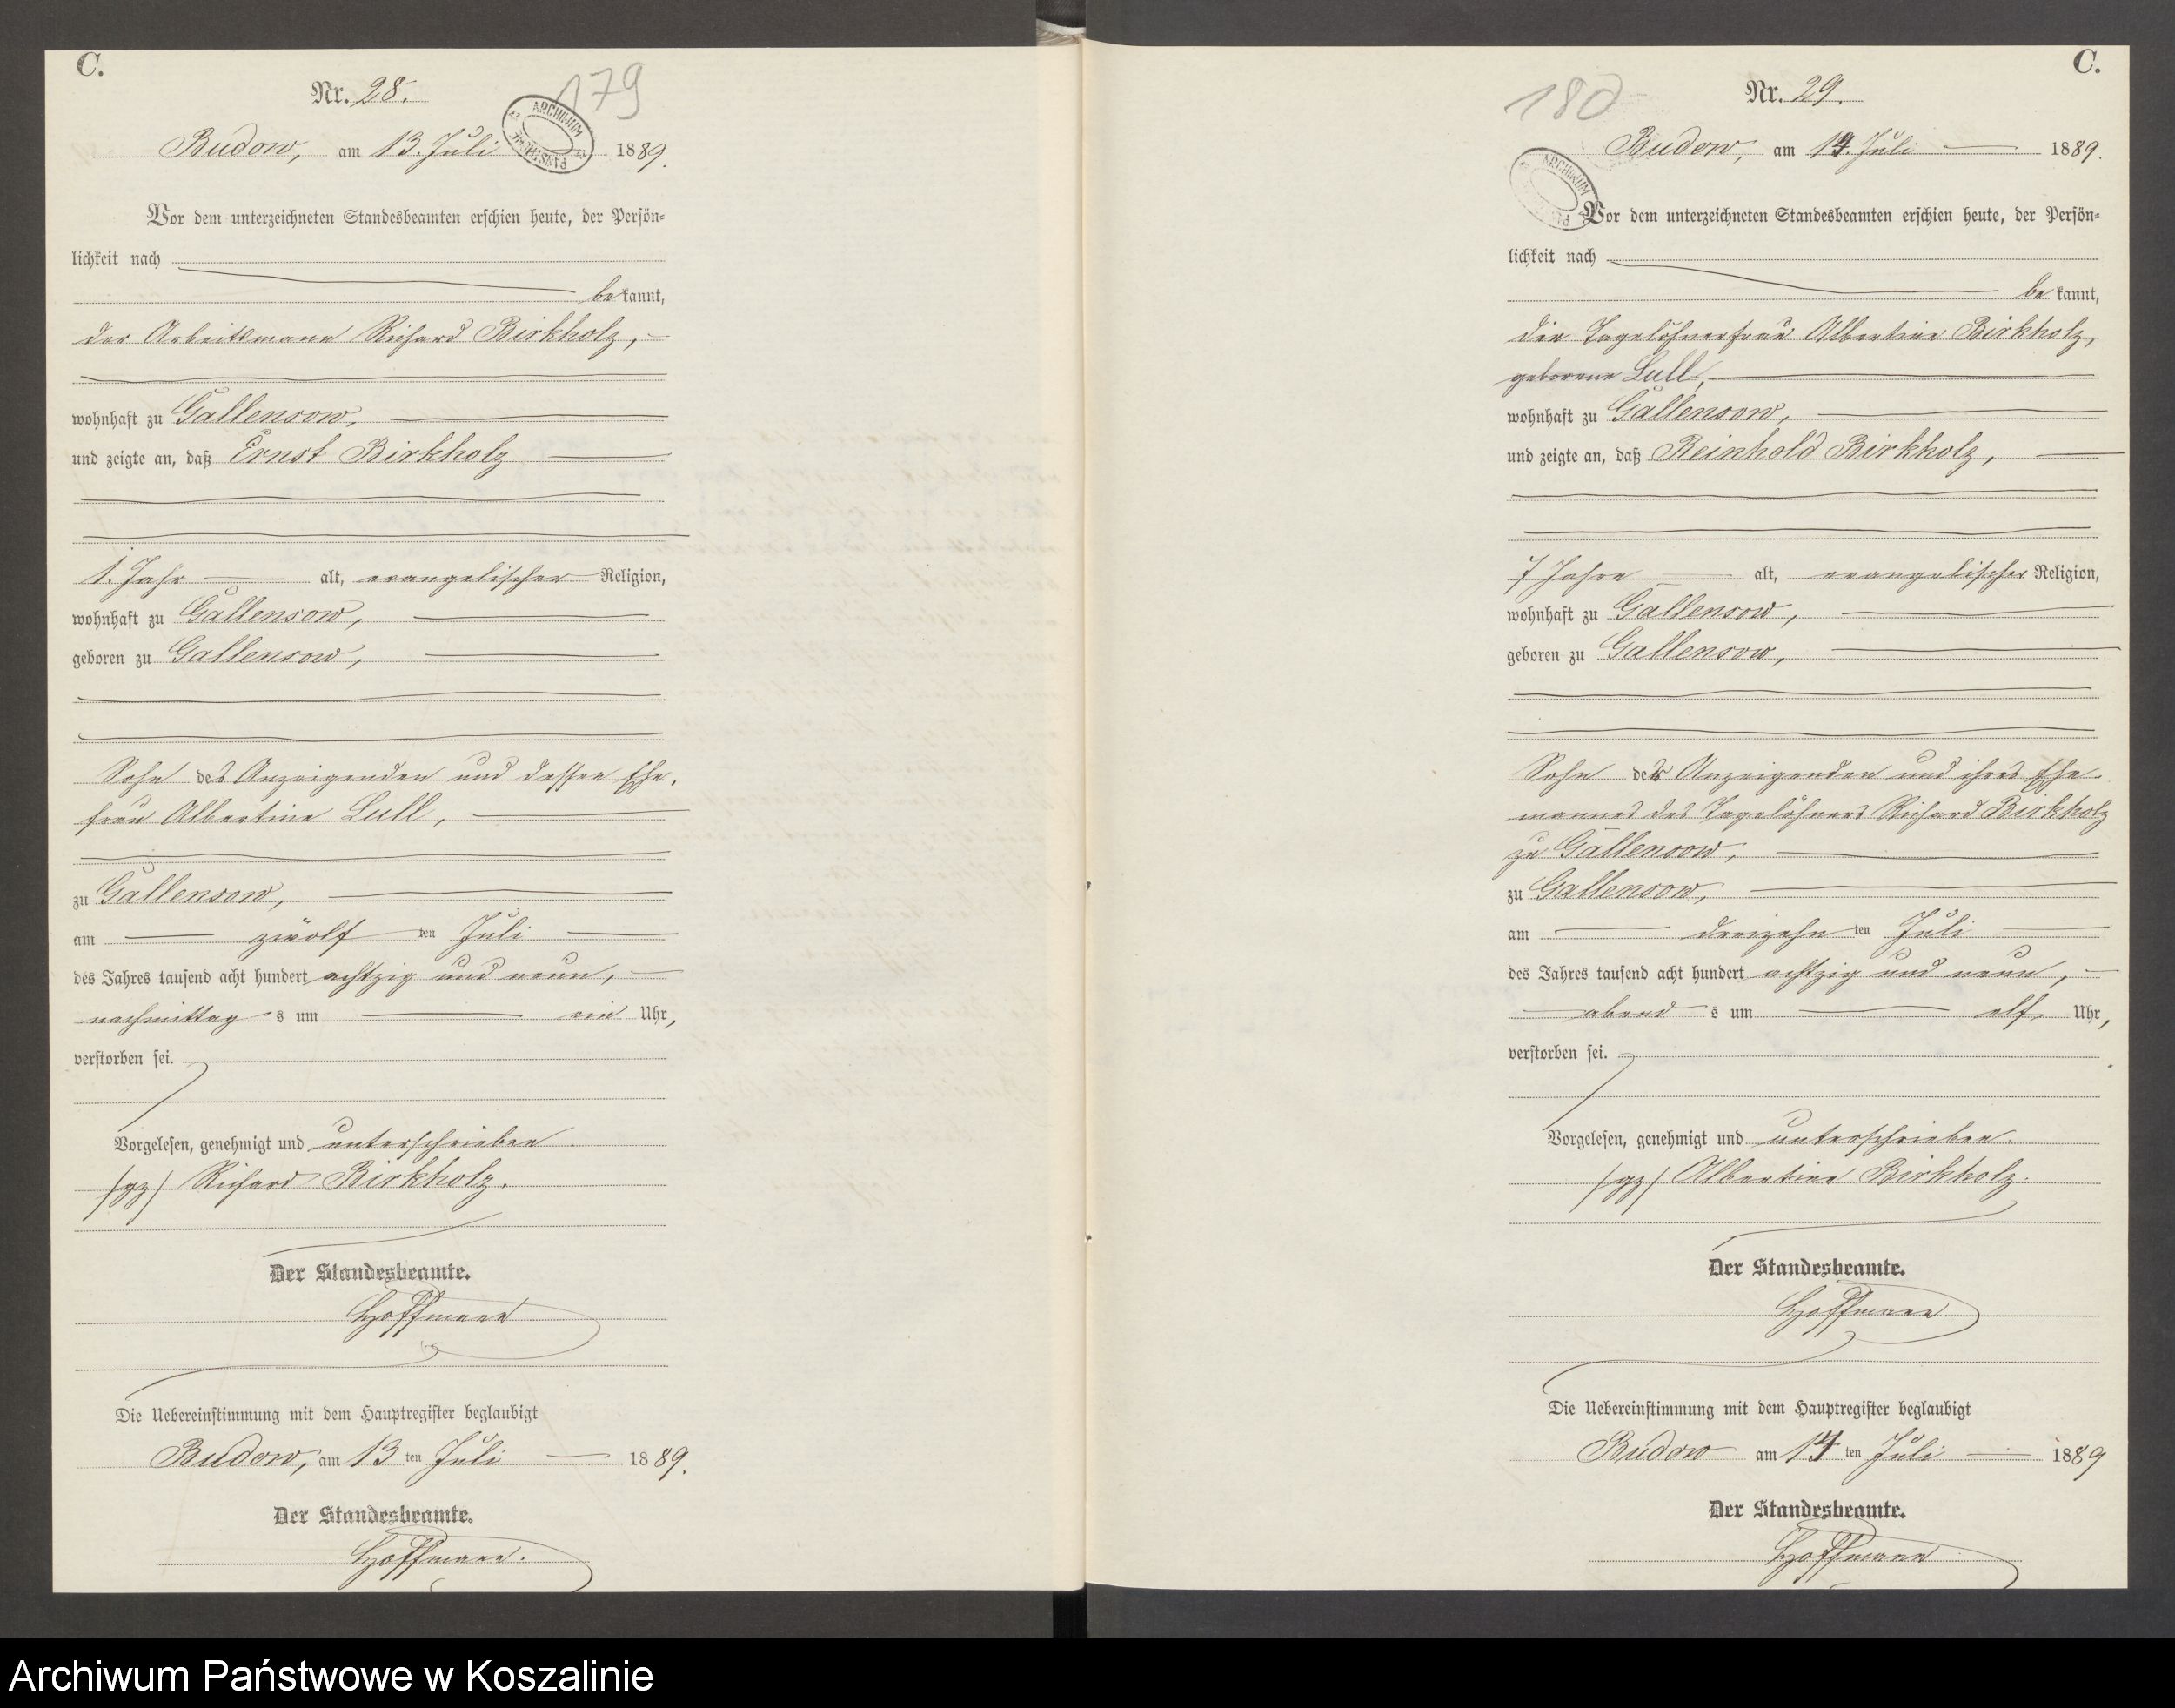 C.
Nr. 28.
179
ARCHIWUM PAŃSTWOWE
Budow, am 13. Juli 1889.
Vor dem unterzeichneten Standesbeamten erschien heute, der Persön-
lichkeit nach
bekannt,
der Arbeitsmann Richard Birkholz,
wohnhaft zu Gallensow,
und zeigte an, daß Ernst Birkholz
1. Jahr alt, evangelischer Religion,
wohnhaft zu Gallensow,
geboren zu Gallensow,
Sohn des Anzeigenden und dessen Ehe-
frau Albertine Lull,
zu Gallensow,
am zwölf ten Juli
des Jahres tausend acht hundert achtzig und neun,
nachmittag s um ein Uhr,
verstorben sei.
Vorgelesen, genehmigt und unterschrieben.
(gz) Richard Birkholz.
Der Standesbeamte.
Hoffmann
Die Uebereinstimmung mit dem Hauptregister beglaubigt
Budow, am 13 ten Juli 1889.
Der Standesbeamte.
Hoffmann.
C.
180
Nr. 29.
ARCHIWUM
Budow, am 14. Juli 1889.
Vor dem unterzeichneten Standesbeamten erschien heute, der Persön-
lichkeit nach
bekannt,
die Tagelöhnerfrau Albertine Birkholz,
geborene Lull,
wohnhaft zu Gallensow,
und zeigte an, daß Reinhold Birkholz,
7 Jahre alt, evangelischer Religion,
wohnhaft zu Gallensow,
geboren zu Gallensow,
Sohn der Anzeigenden und ihres Ehe-
mannes des Tagelöhners Richard Birkholz
zu Gallensow,
zu Gallensow,
am dreizehn ten Juli
des Jahres tausend acht hundert achtzig und neun,
abend s um elf Uhr,
verstorben sei.
Vorgelesen, genehmigt und unterschrieben.
(gz) Albertine Birkholz.
Der Standesbeamte.
Hoffmann
Die Uebereinstimmung mit dem Hauptregister beglaubigt
Budow am 14 ten Juli 1889
Der Standesbeamte.
Hoffmann
Archiwum Państwowe w Koszalinie